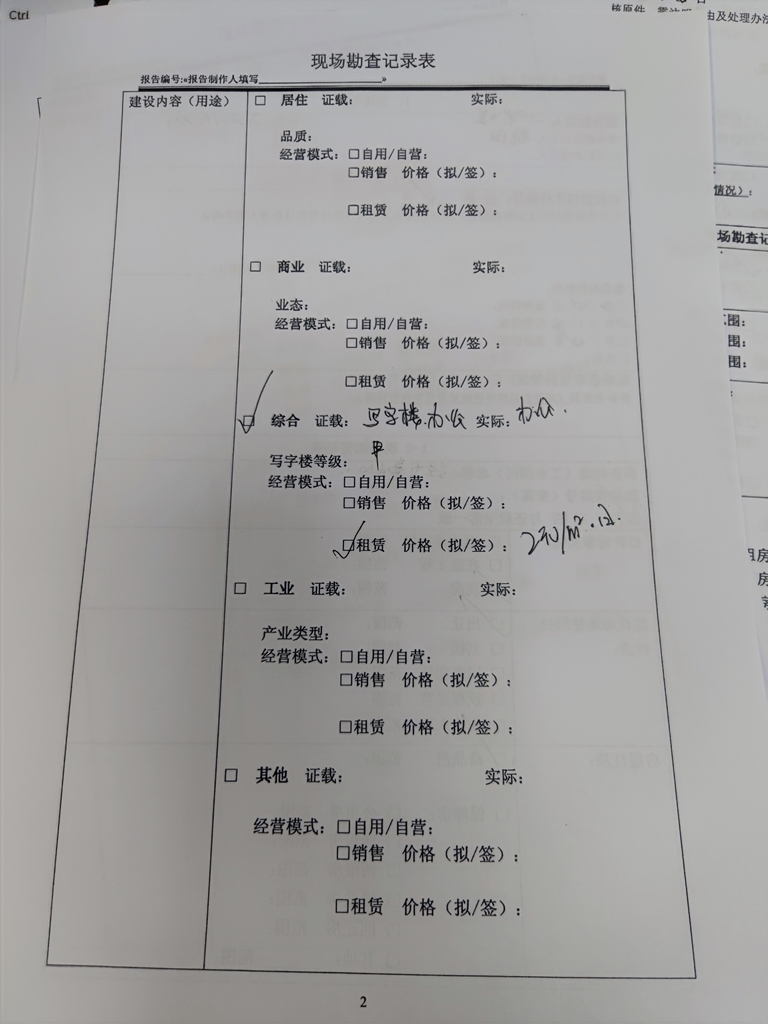 Ctrl
由及处理办法
现场勘查记录表
报告编号:«报告制作人填写____________________»
建设内容（用途） □ 居住 证载： 实际：
品质：
经营模式：□自用/自营：
□销售 价格（拟/签）：
□租赁 价格（拟/签）：
□ 商业 证载： 实际：
业态：
经营模式：□自用/自营：
□销售 价格（拟/签）：
□租赁 价格（拟/签）：
☑ 综合 证载：写字楼.办公 实际：办公.
写字楼等级：甲
经营模式：□自用/自营：
□销售 价格（拟/签）：
☑租赁 价格（拟/签）：2元/m².日.
□ 工业 证载： 实际：
产业类型：
经营模式：□自用/自营：
□销售 价格（拟/签）：
□租赁 价格（拟/签）：
□ 其他 证载： 实际：
经营模式：□自用/自营：
□销售 价格（拟/签）：
□租赁 价格（拟/签）：
2
情况）：
场勘查记
围：
围：
围：
租房
房